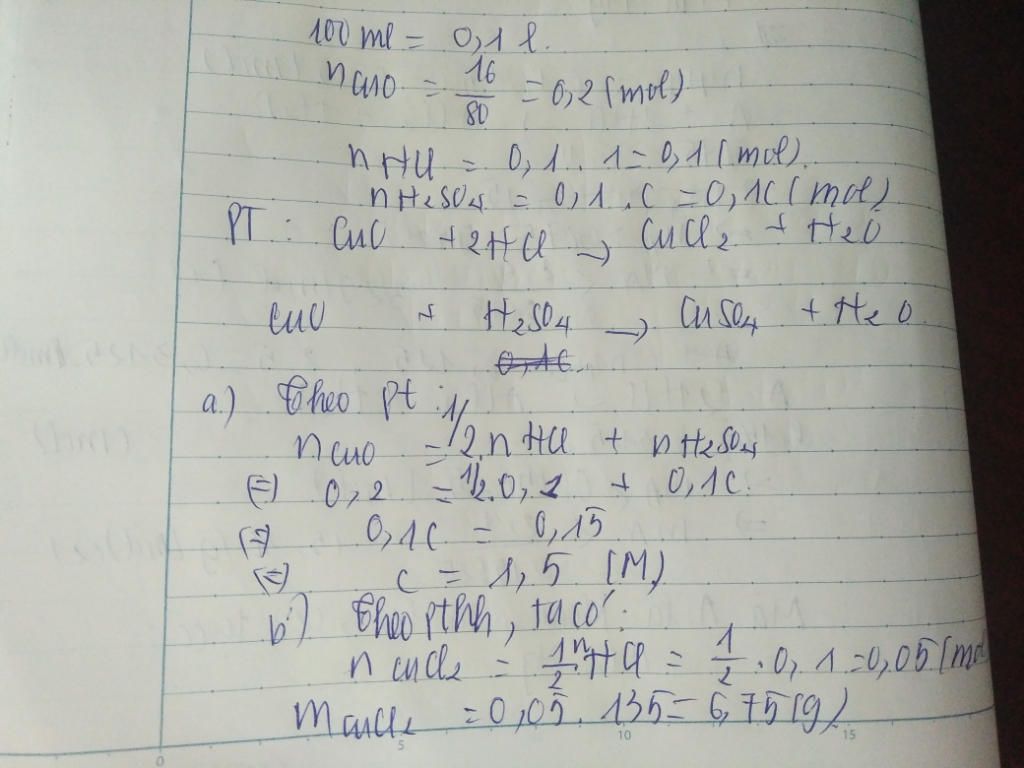 100 ml = 0,1 l.
nCuO = 16/80 = 0,2 (mol)
nHCl = 0,1 . 1 = 0,1 (mol).
nH2SO4 = 0,1 . C = 0,1C (mol)
PT : CuO + 2HCl → CuCl2 + H2O
CuO + H2SO4 → CuSO4 + H2O
0,1C.
a.) Theo pt :
nCuO = 1/2.nHCl + nH2SO4
(=) 0,2 = 1/2.0,1 + 0,1C.
(=) 0,1C = 0,15
(=) C = 1,5 (M)
b) Theo pthh, ta có :
nCuCl2 = 1/2.nHCl = 1/2 . 0,1 = 0,05 (mol
mCuCl2 = 0,05 . 135 = 6,75 (g)
0 5 10 15